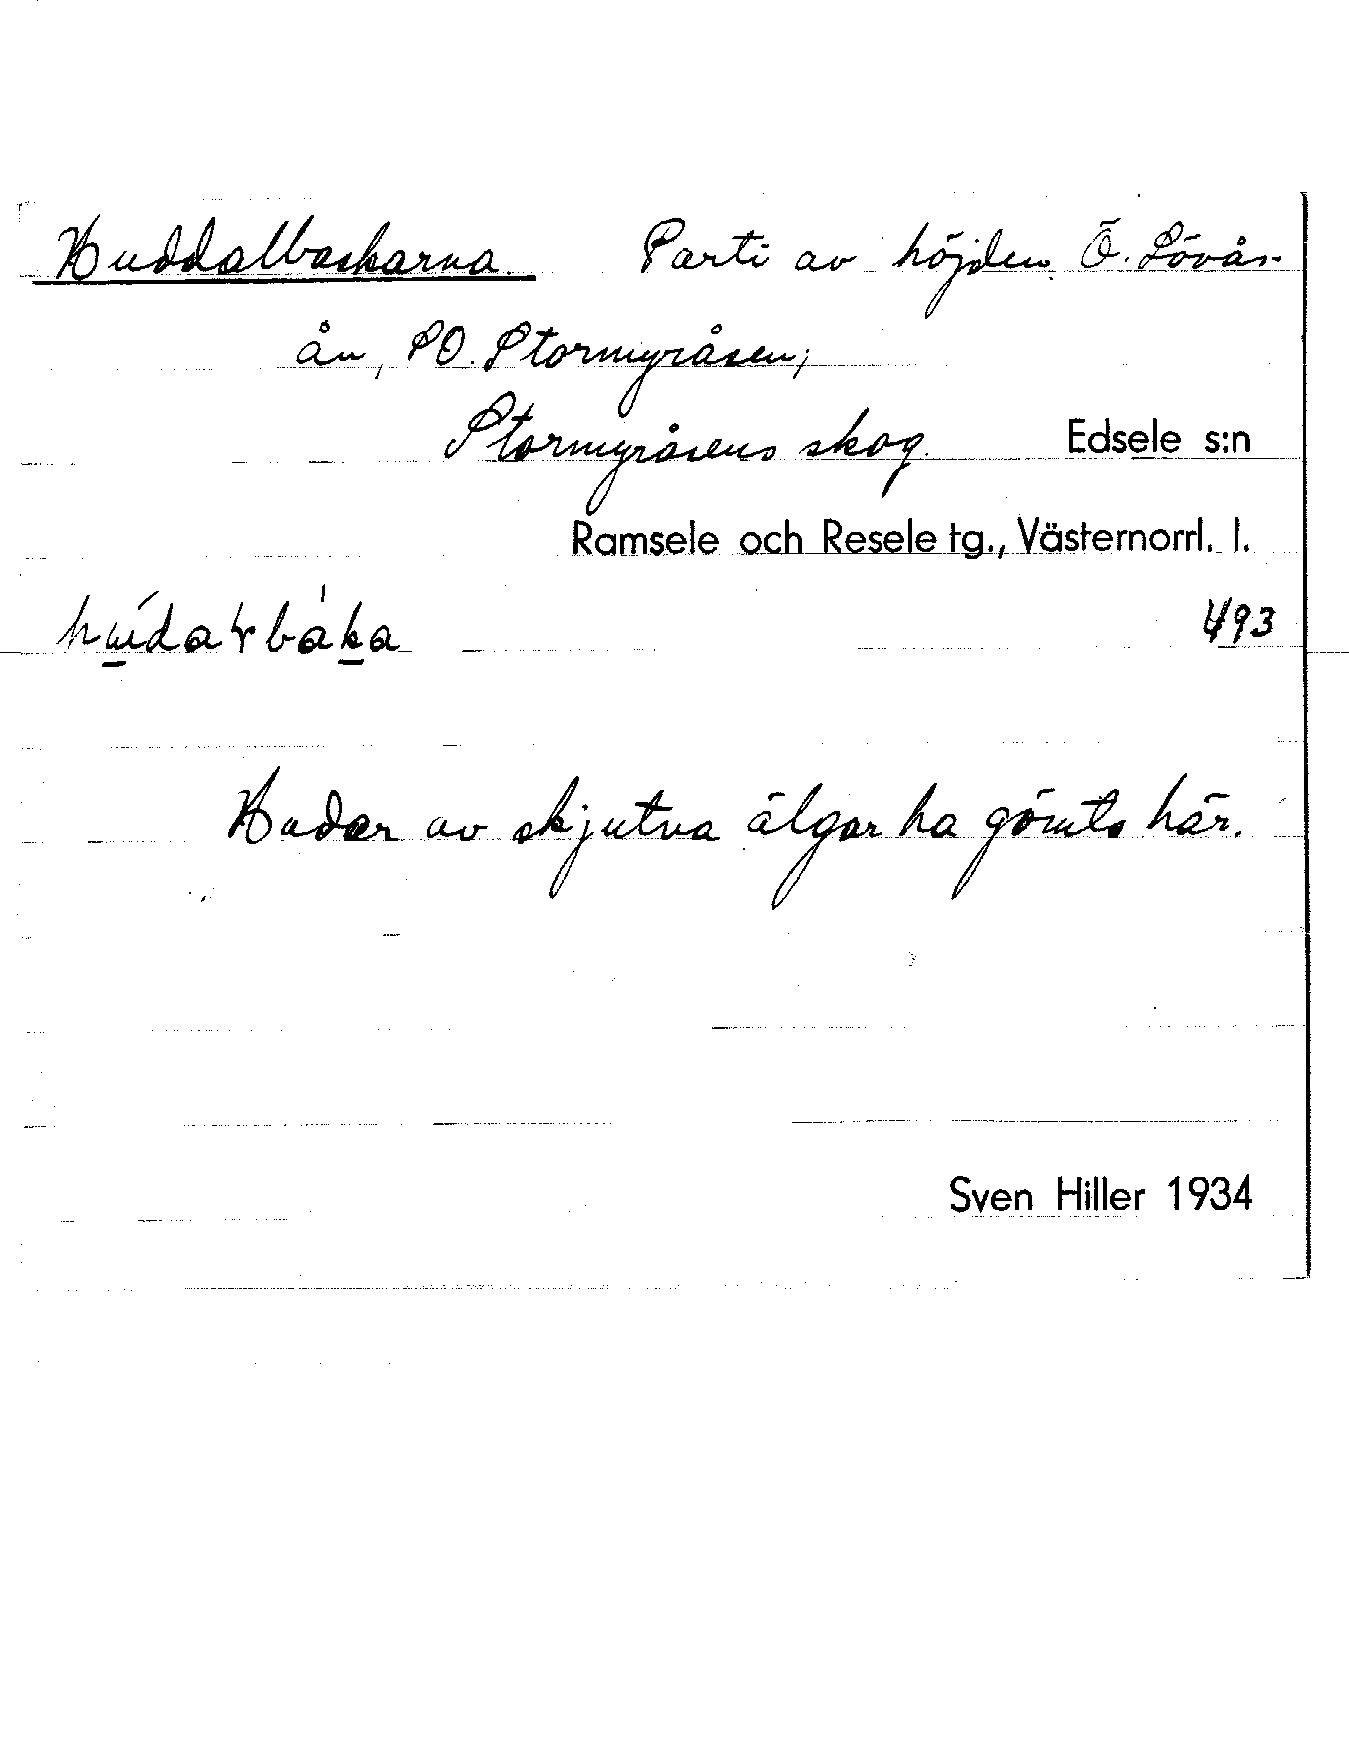 Huddalbackarna. Parti av höjden Ö. Lövås-
ån, SO. Stormyråsen;
Stormyråsens skog. Edsele s:n
Ramsele och Resele tg., Västernorrl. l.
493
Hudar av skjutna älgar ha gömts här.
Sven Hiller 1934